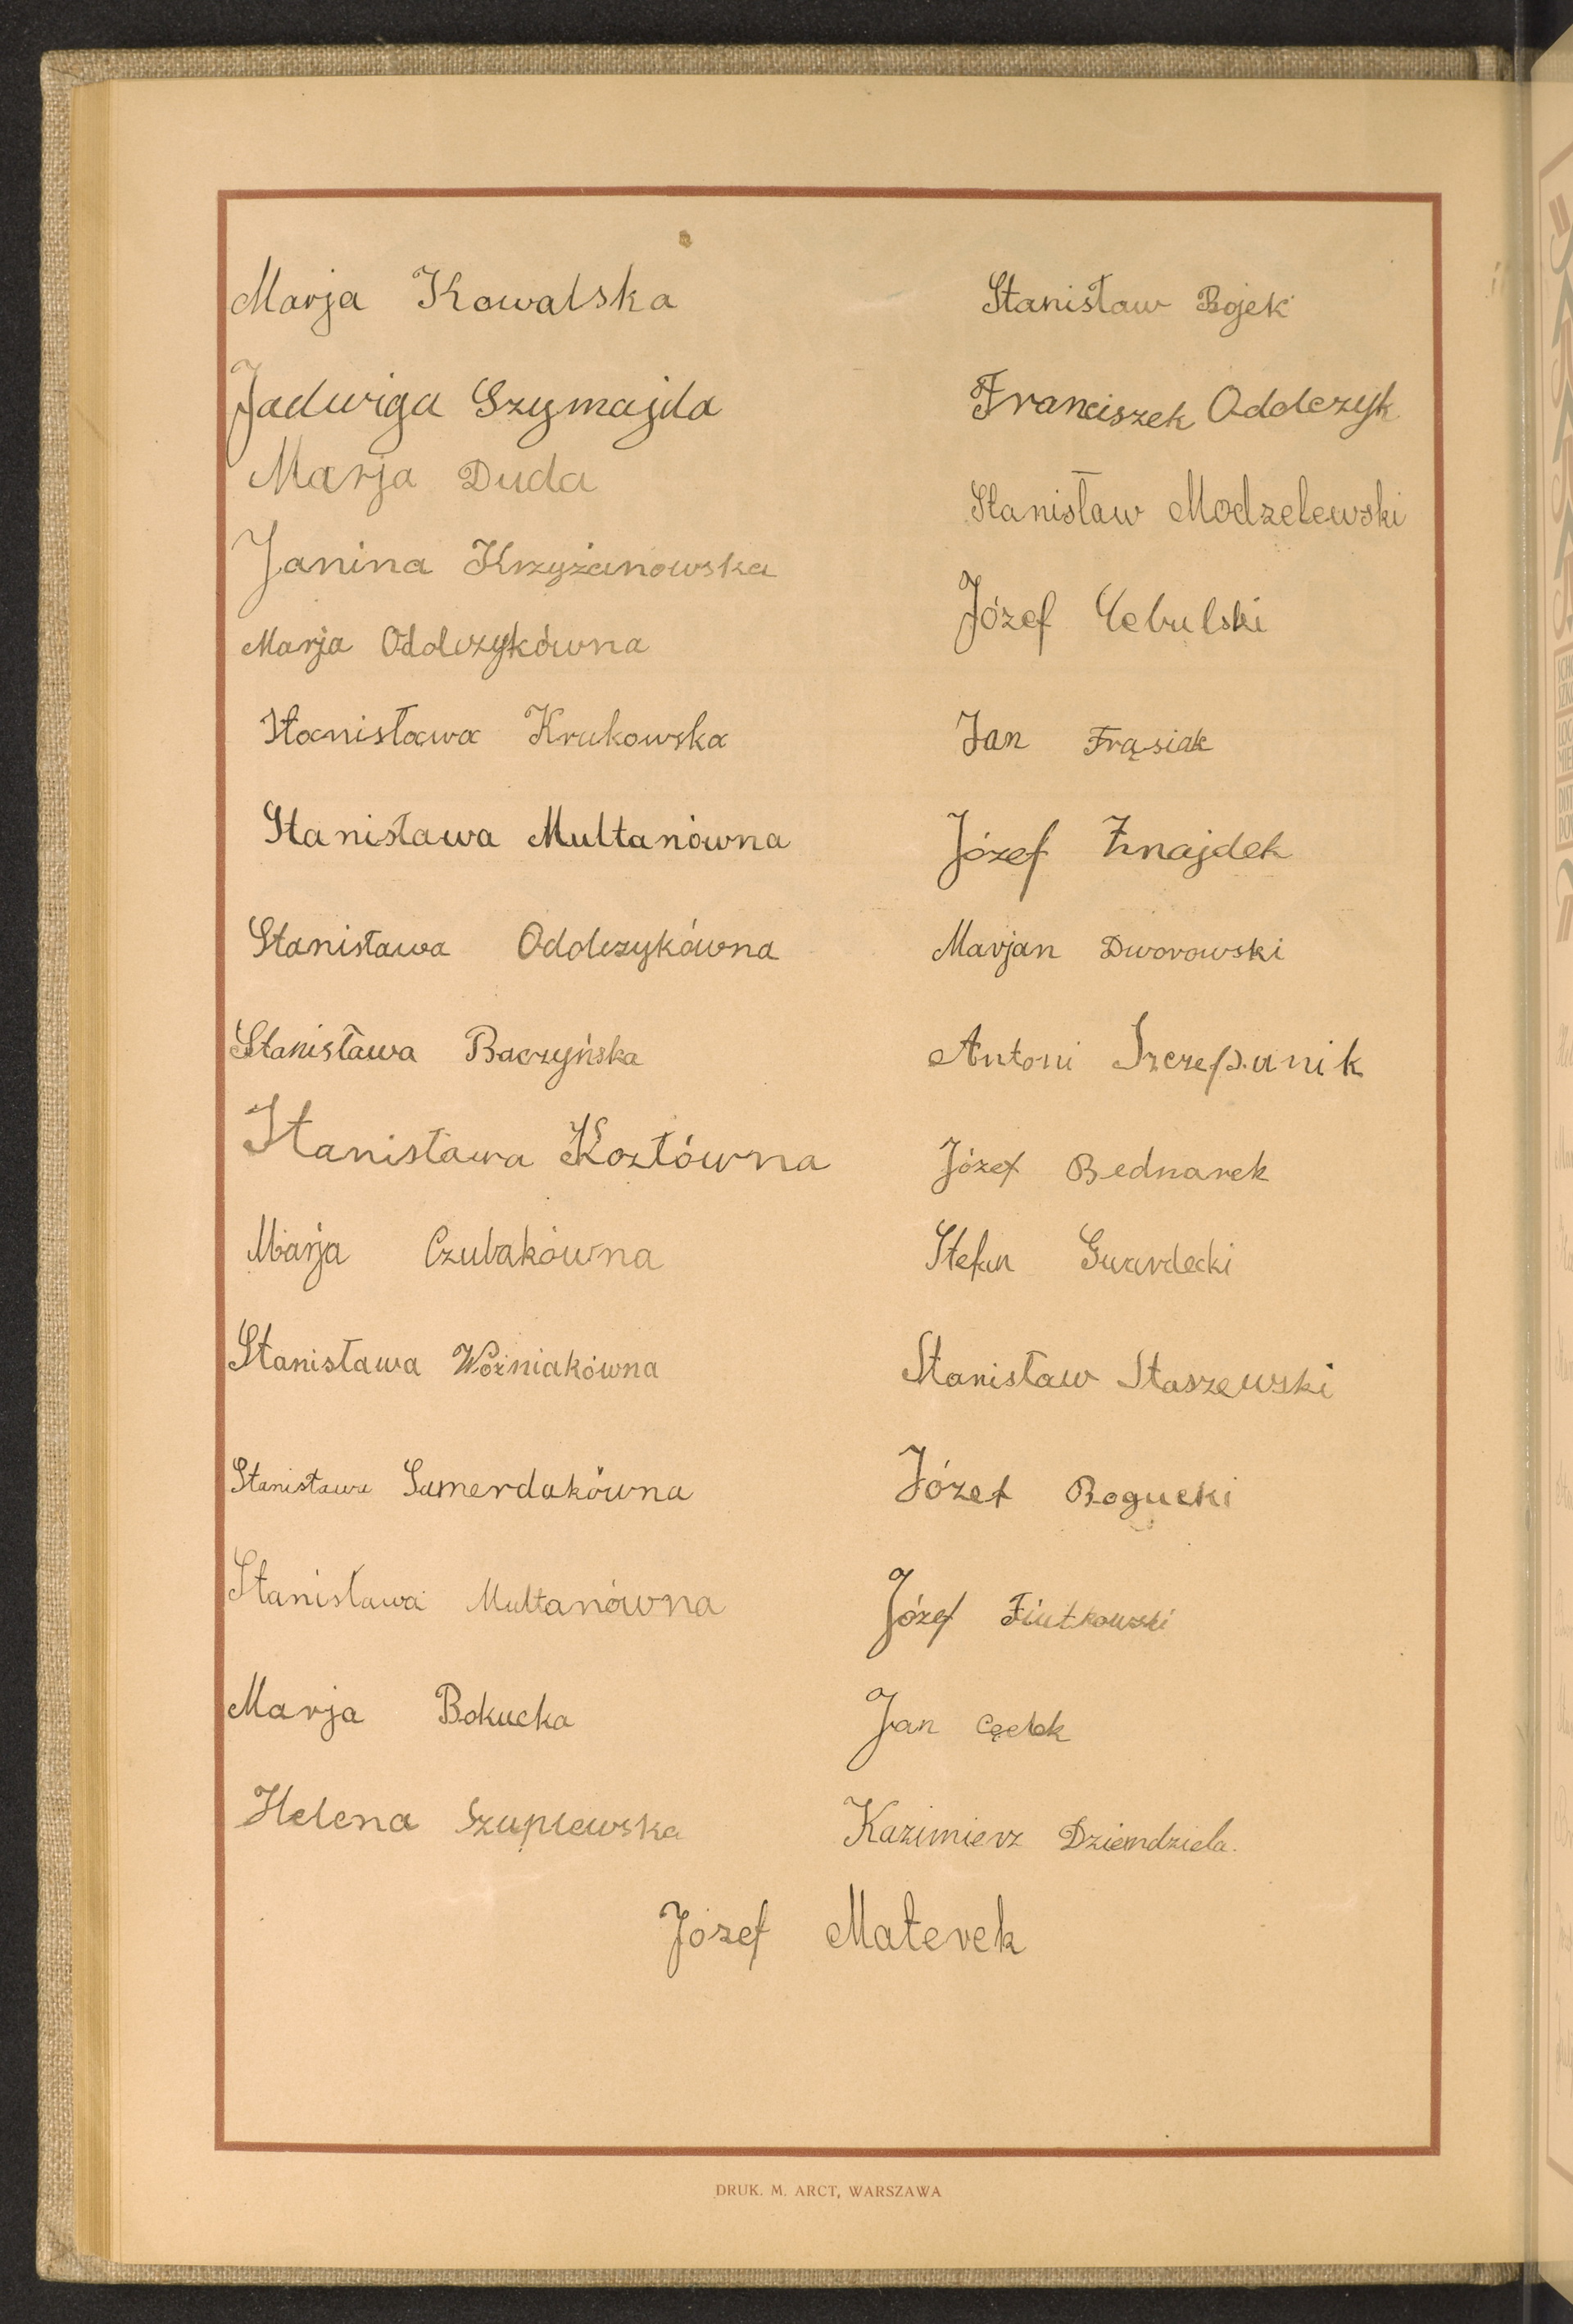 Marja Kowalska
Jadwiga Szymajda
Marja Duda
Janina Krzyżanowska
Marja Oddczykówna
Stanisława Krukowska
Stanisława Multanówna
Stanisława Oddczykówna
Stanisława Baczyńska
Stanisława Kozłówna
Marja Czubakówna
Stanisława Woźniakówna
Stanisława Samerdakówna
Stanisława Multanówna
Marja Bokucka
Helena Szuplewska
Stanisław Bojek
Franciszek Oddczyk
Stanisław Modzelewski
Józef Cebulski
Jan Frąsiak
Józef Znajdek
Marjan Dworowski
Antoni Szczepanik
Józef Bednarek
Stefan Gwardecki
Stanisław Staszewski
Józef Bogucki
Józef Fiutkowski
Jan
Kazimierz Dziemdziela.
Józef Materek
DRUK. M. ARCT, WARSZAWA